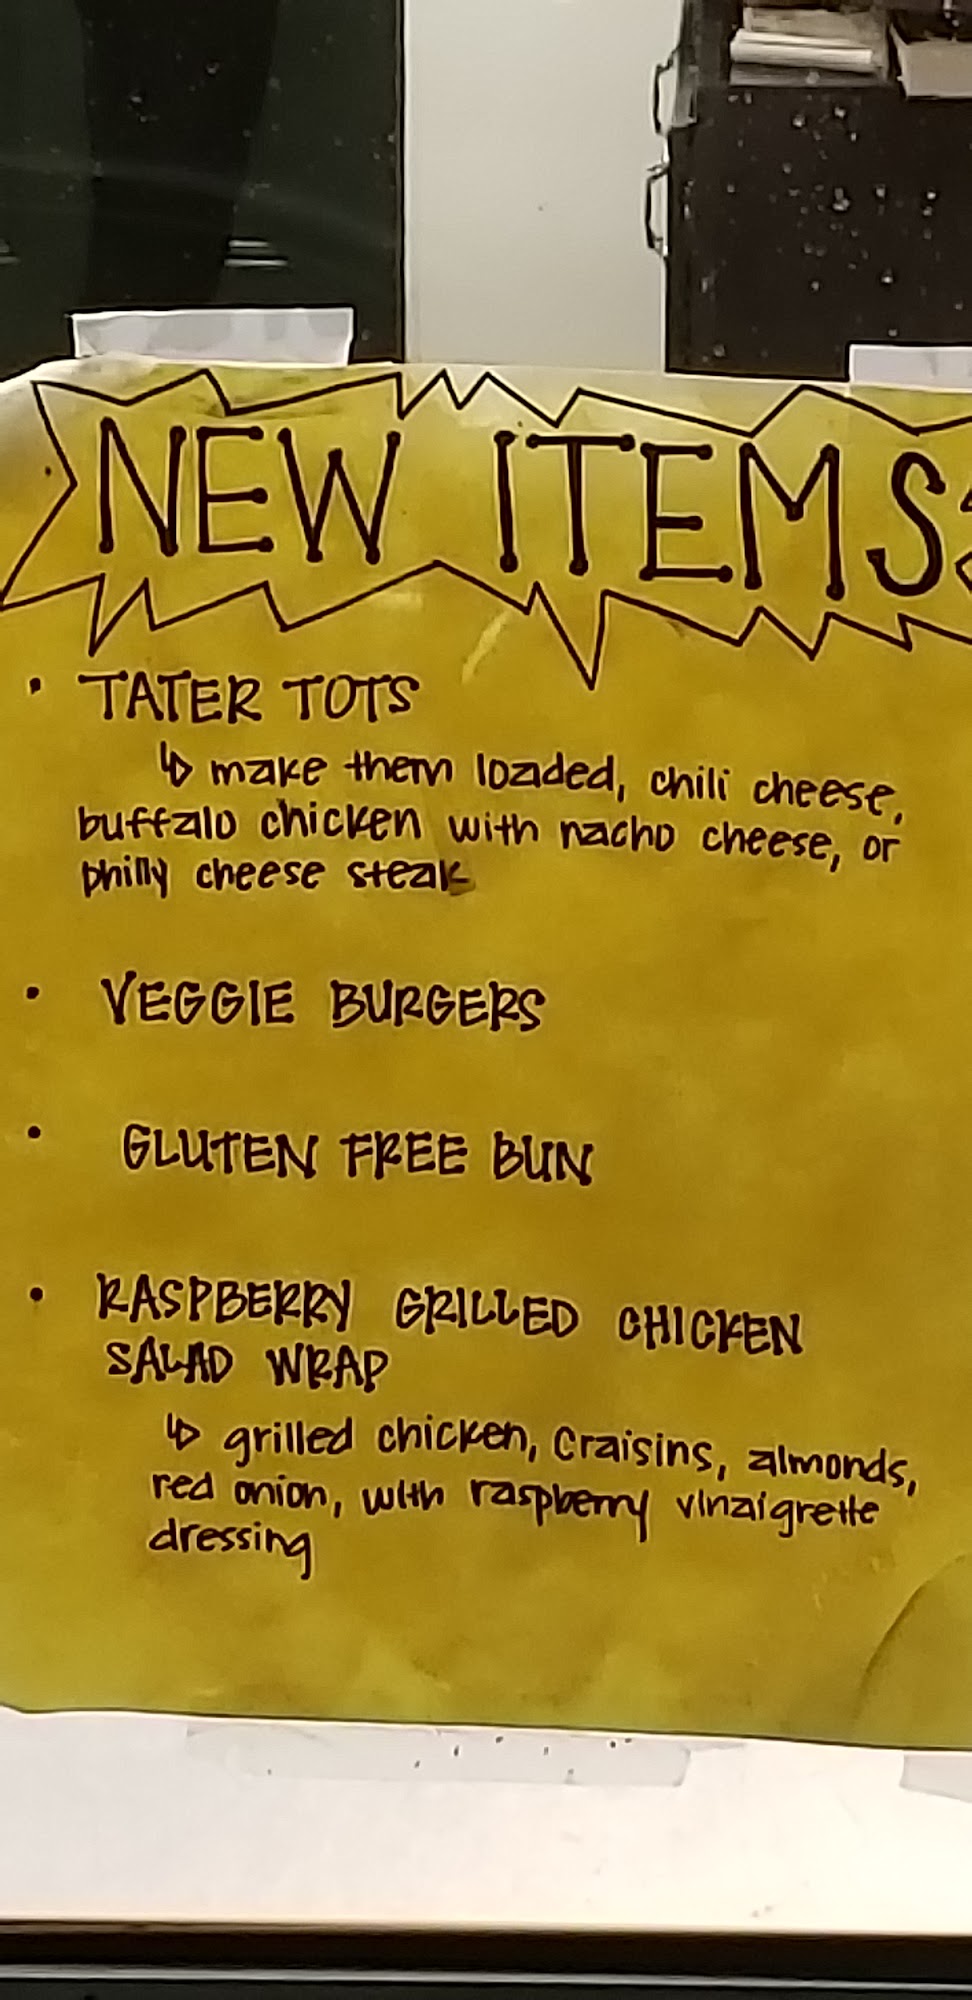 NEW ITEMS
• TATER TOTS
↳ make them loaded, chili cheese,
buffalo chicken with nacho cheese, or
philly cheese steak
• VEGGIE BURGERS
• GLUTEN FREE BUN
• RASPBERRY GRILLED CHICKEN
SALAD WRAP
↳ grilled chicken, craisins, almonds,
red onion, with raspberry vinaigrette
dressing